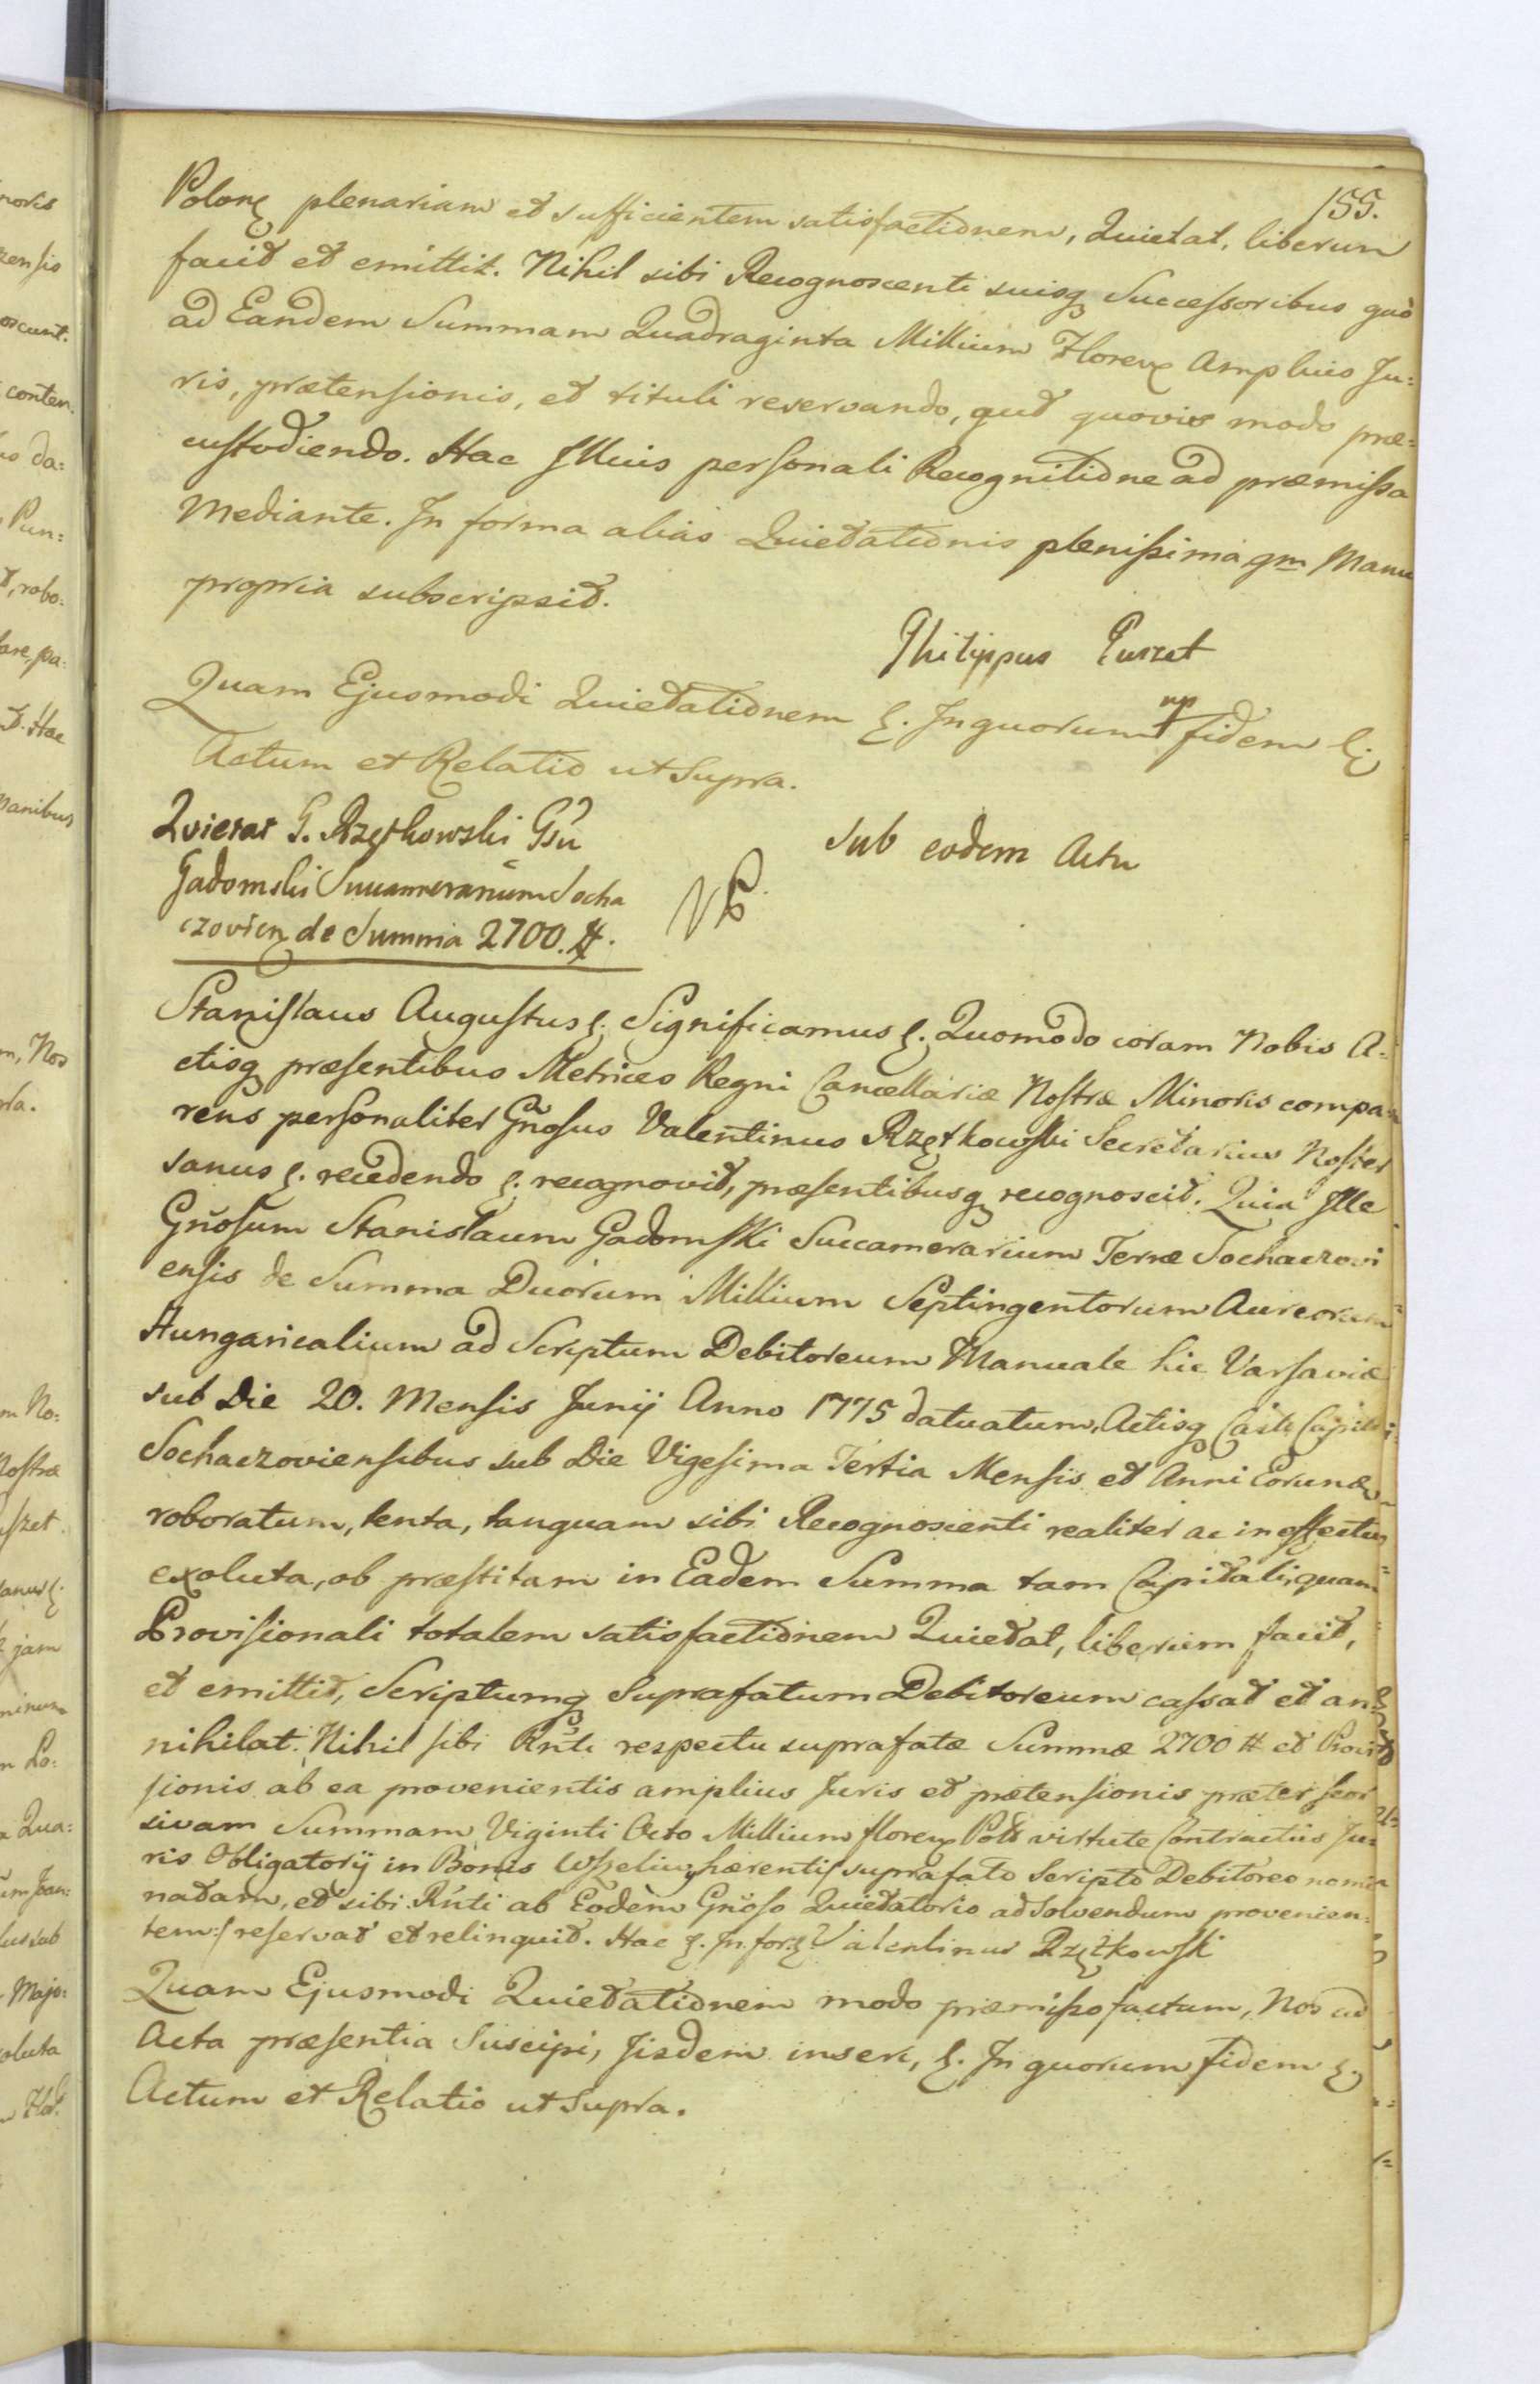 155.
Polon plenariam et sufficientem satisfactionem, Quietat, liberum
facit et emittit. Nihil sibi Recognoscenti suisq Successoribus quo
ad Eandem Summam Quadraginta Millium Floren Amplius Ju=
ris, prætensionis, et tituli reservando, aut quovis modo præ=
custodiendo. Hac Illius personali Recognitione ad præmissa
Mediante. In forma alias Quietationis plenissima qm Manu
propria subscripsit.
Philippus Purzet
mp
Quam Ejusmodi Quietationem &. In quorum fidem &
Actum et Relatio ut Supra.
Quietat G. Rzętkowski Gsu
Gadomski Succamerarium Socha
czovien de Summa 2700. #.
Sub eodem Actu
Stanislaus Augustus &. Significamus &. Quomodo coram Nobis A=
ctisq præsentibus Metrices Regni Cancellariæ Nostræ Minoris compa=
rens personaliter Gnosus Valentinus Rzętkowski Secretarius Noster
sanus &. recedendo &. recognovit, præsentibusq recognoscit. Quia Ille
Gnosum Stanislaum Gadomski Succamerarium Terræ Sochaczovi
ensis de Summa Duorum Millium Septingentorum Aureorum
Hungaricalium ad Scriptum Debitoreum Manuale hic Varsaviæ
sub Die 20. Mensis Junij Anno 1775 datuatum, Actisq Castr Capitl
Sochaczoviensibus sub Die Vigesima Tertia Mensis et Anni Eorund
roboratum, tenta, tanquam sibi Recognoscenti realiter ac in effectu
exoluta, ob præstitam in Eadem Summa tam Capitali, quam
Provisionali totalem satisfactionem Quietat, liberum facit,
et emittit, Scriptumq Suprafatum Debitoreum cassat et an=
nihilat. Nihil sibi Rnti respectu suprafatæ Summæ 2700 # et Provi
sionis ab ea provenientis amplius Juris et prætensionis præter seor
sivam Summam Viginti Octo Millium floren Pol virtute Contractus Ju=
ris Obligatorij in Bonis Wszeliwy hærentis suprafato Scripto Debitoreo nomi
natam, et sibi Rnti ab Eodem Gnoso Quietatorio ad Solvendum provenien=
tem:/ reservat et relinquit. Hac &. In for Valentinus Rzętkowski
Quam Ejusmodi Quietationem modo præmisso factam, Nos ad
Acta præsentia Suscipi, Jisdem inseri, &. In quorum fidem &
Actum et Relatio ut Supra.